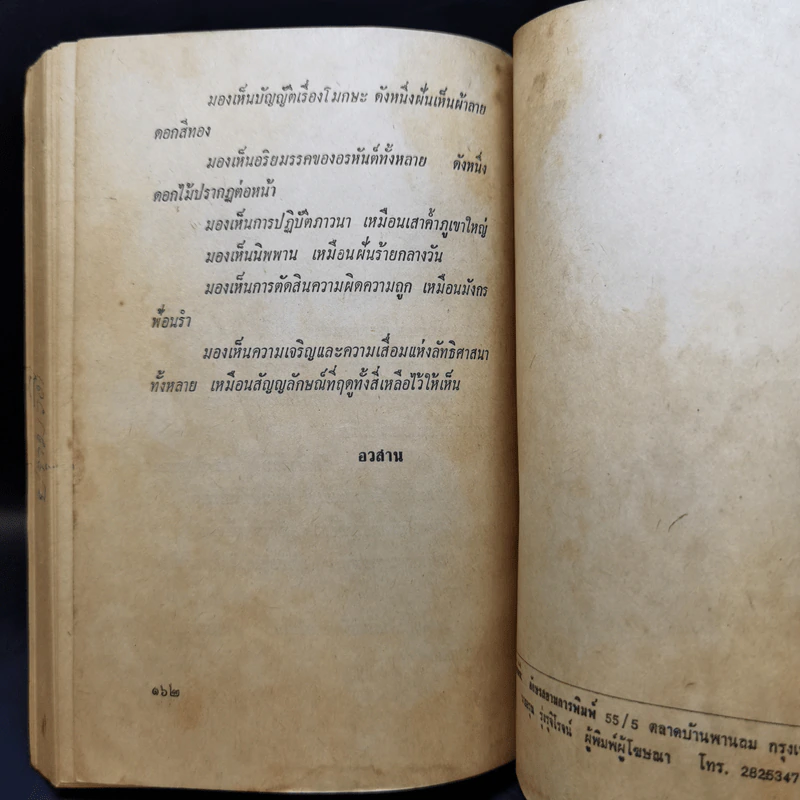 มองเห็นบัญญัติเรื่องโมกษะ ดังหนึ่งฝันเห็นผ้าลาย
ดอกสีทอง
มองเห็นอริยมรรคของอรหันต์ทั้งหลาย ดังหนึ่ง
ดอกไม้ปรากฏต่อหน้า
มองเห็นการปฏิบัติภาวนา เหมือนเสาค้ำภูเขาใหญ่
มองเห็นนิพพาน เหมือนฝันร้ายกลางวัน
มองเห็นการตัดสินความผิดความถูก เหมือนมังกร
ฟ้อนรำ
มองเห็นความเจริญและความเสื่อมแห่งลัทธิศาสนา
ทั้งหลาย เหมือนสัญญลักษณ์ที่ฤดูทั้งสี่เหลือไว้ให้เห็น
อวสาน
๑๖๒
55/5 ตลาดบ้านพานถม กรุงเ
รุ่งรุจิโรจน์ ผู้พิมพ์ผู้โฆษณา โทร. 2825347